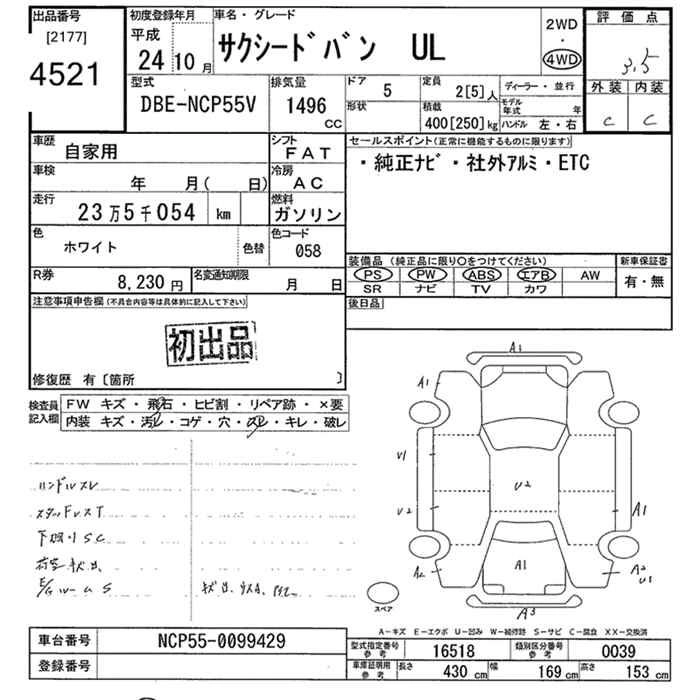 出品番号
[2177]
4521
初度登録年月
平成
24年10月
車名・グレード
サクシードバン UL
2WD
・
4WD
評価点
3.5
外装 内装
C C
型式
DBE-NCP55V
排気量
1496
CC
ドア
5
形状
定員
2[5]人
積載
400[250]kg
ディーラー・並行
モデル年式 年
ハンドル 左・右
車歴
自家用
シフト
FAT
車検
年 月( 日)
冷房
AC
走行
23万5千054 km
燃料
ガソリン
色
ホワイト
色替
色コード
058
R券
8,230円
名変通知期限
月 日
セールスポイント(正常に機能するものに限ります)
・純正ナビ・社外アルミ・ETC
装備品 (純正品に限り○をつけてください)
PS PW ABS エアB AW
SR ナビ TV カワ
新車保証書
有・無
後日品
注意事項申告欄(不具合内容等は具体的に記入して下さい)
初出品
修復歴 有〔箇所 〕
検査員記入欄
FW キズ・飛石・ヒビ割・リペア跡・×要
内装 キズ・汚レ・コゲ・穴・スレ・キレ・破レ
ハンドルスレ
スタッドレスT
下廻りSC
荷室キズ凹
A1
A1
U1
U2
U2
A1
A1
A2
A2
U1
A3
スペア
A－キズ E－エクボ U－凹み W－補修跡 S－サビ C－腐食 XX－交換済
車台番号
NCP55-0099429
登録番号
型式指定番号
参考
16518
類別区分番号
参考
0039
車庫証明用
参考
長さ 430 cm 幅 169 cm 高さ 153 cm